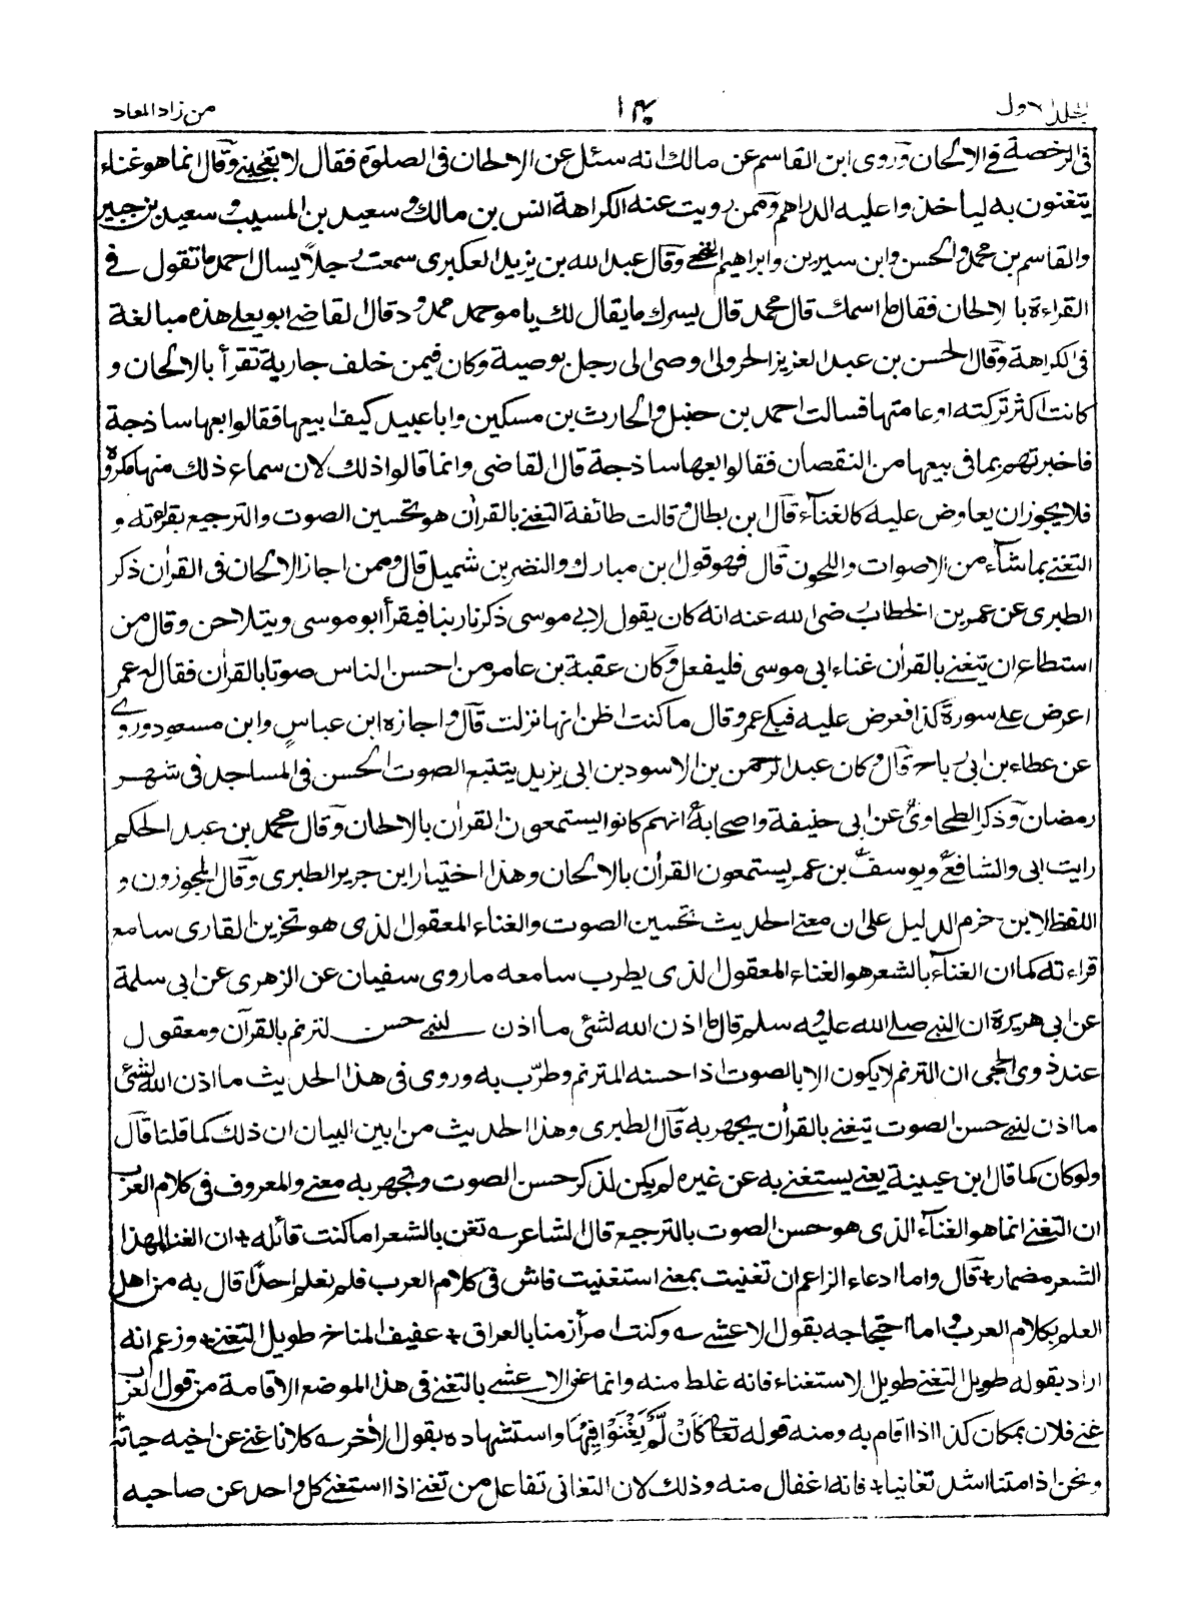 المجلد الاول
۱۴۰
من زاد المعاد
فى الرخصة فى الالحان وروى ابن القاسم عن مالك انه سئل عن الالحان فى الصلوة فقال لا تعجبنى وقال انما هو غناء
يتغنون به لياخذوا عليه الدراهم وممن رويت عنه الكراهة انس بن مالك وسعيد بن المسيب وسعيد بن جبير
والقاسم بن محمد والحسن وابن سيرين وابراهيم النخعى وقال عبد الله بن يزيد العكبرى سمعت رجلاً يسال احمد ما تقول فى
القراءة بالالحان فقال ما اسمك قال محمد قال يسرك ما يقال لك يا موحمد ممدود قال القاضى ابو يعلى هذه مبالغة
فى الكراهة وقال الحسن بن عبد العزيز الحروى اوصى الى رجل بوصية وكان فيمن خلف جارية تقرأ بالالحان و
كانت اكثر تركته او عامتها فسالت احمد بن حنبل والحارث بن مسكين وابا عبيد كيف ابيعها فقالوا بعها ساذجة
فاخبرتهم بما فى بيعها من النقصان فقالوا بعها ساذجة قال القاضى وانما قالوا ذلك لان سماع ذلك منها مكروه
فلا يجوز ان يعاوض عليه كالغناء قال ابن بطال وقالت طائفة التغنى بالقراٰن هو تحسين الصوت والترجيع بقراءته و
التغنى بما شآء من الاصوات واللحون قال فهو قول ابن مبارك والنضر بن شميل قال وممن اجاز الالحان فى القراٰن ذكر
الطبرى عن عمر بن الخطاب رضى الله عنه انه كان يقول لابى موسى ذكرنا ربنا فيقرأ ابو موسى ويتلاحن وقال من
استطاع ان يتغنى بالقراٰن غناء ابى موسى فليفعل وكان عقبة بن عامر من احسن الناس صوتا بالقراٰن فقال له عمر
اعرض على سورة كذا فعرض عليه فبكى عمر وقال ما كنت اظن انها نزلت قال واجازه ابن عباسٍ وابن مسعود وروى
عن عطاء بن ابى رباح قال وكان عبد الرحمن بن الاسود بن ابى يزيد يتتبع الصوت الحسن فى المساجد فى شهر
رمضان وذكر الطحاوى عن ابى حنيفة واصحابه انهم كانوا يستمعون القراٰن بالالحان وقال محمد بن عبد الحكم
رايت ابى والشافعى ويوسف بن عمر يستمعون القراٰن بالالحان وهذا اختيار ابن جرير الطبرى وقال المجوزون و
اللفظ لابن حزم الدليل على ان معنى الحديث تحسين الصوت والغناء المعقول الذى هو تحزين القارى سامع
قراءته كما ان الغناء بالشعر هو الغناء المعقول الذى يطرب سامعه ما روى سفيان عن الزهرى عن ابى سلمة
عن ابى هريرة ان النبى صلى الله عليه وسلم قال ما اذن الله لشئ ما اذن لنبى حسن الترنم بالقراٰن ومعقول
عند ذوى الحجى ان الترنم لا يكون الا بالصوت اذا حسنه المترنم وطرّب به وروى فى هذا الحديث ما اذن الله لشئ
ما اذن لنبى حسن الصوت يتغنى بالقراٰن يجهر به قال الطبرى وهذا الحديث من ابين البيان ان ذلك كما قلنا قال
ولو كان كما قال ابن عيينة يعنى يستغنى به عن غيره لم يكن لذكر حسن الصوت وتجهر به معنى والمعروف فى كلام العرب
ان التغنى انما هو الغناء الذى هو حسن الصوت بالترجيع قال الشاعر تغن بالشعر اما كنت قائله + ان الغناء لهذا
الشعر مضمار + قال واما ادعاء الزاعم ان تغنيت بمعنى استغنيت فاش فى كلام العرب فلم نعلم احدًا قال به من اهل
العلم بكلام العرب واما احتجاجه بقول الاعشى وكنت امرأ زمنا بالعراق + عفيف المناخ طويل التغنى + وزعم انه
اراد بقوله طويل التغنى طويل الاستغناء فانه غلط منه وانما عنى الاعشى بالتغنى فى هذا الموضع الاقامة من قول العرب
غنى فلان بمكان كذا اذا اقام به ومنه قوله تعالى كَاَنْ لَّمْ يَغْنَوْا فِيْهَا واستشهاده بقول الاٰخر كلانا غنى عن اخيه حياته +
ونحن اذا متنا اشد تغانيا + فانه اغفال منه وذلك لان التغانى تفاعل من تغنى اذا استغنى كل واحد عن صاحبه